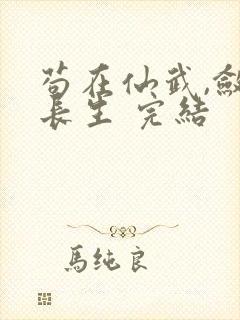 苟在仙武,斂
長生 完結
馬純良